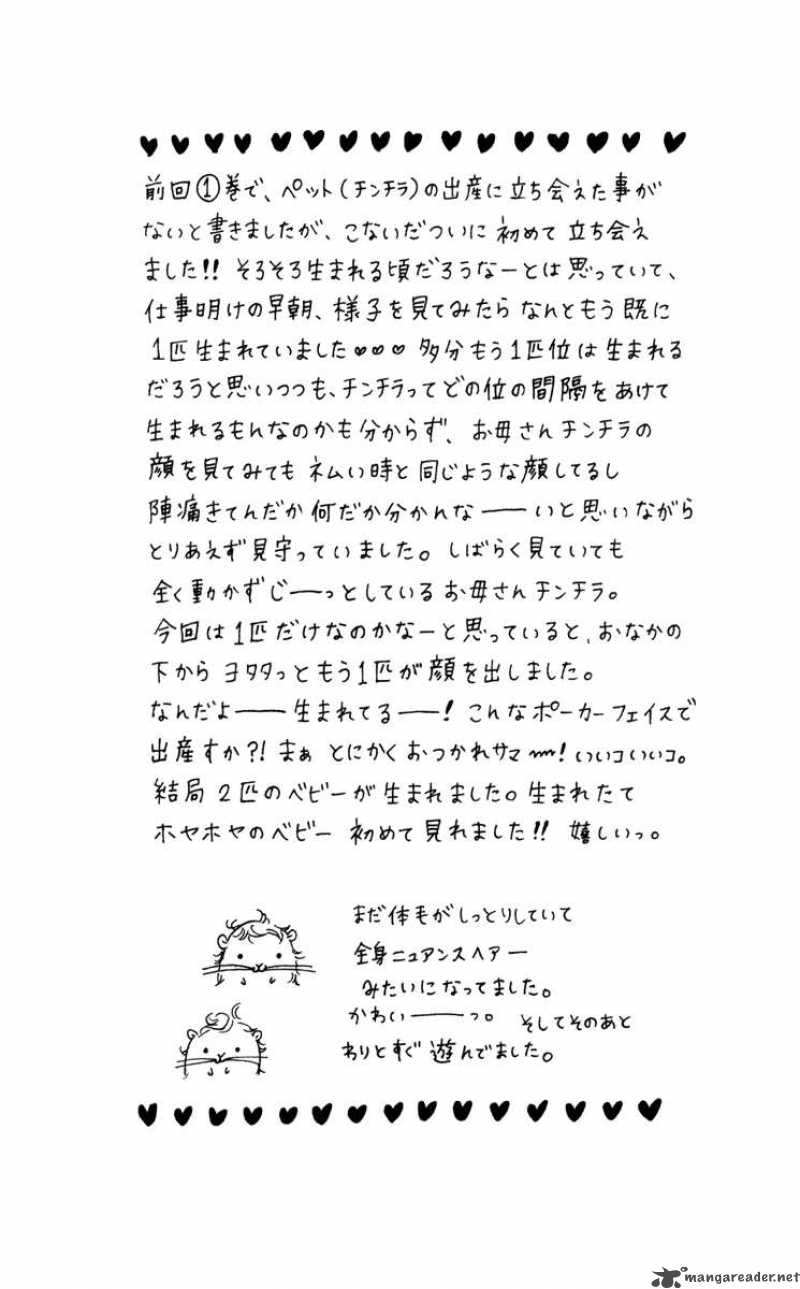 前回①巻で、ペット(チンチラ)の出産に立ち会えた事が
ないと書きましたが、こないだついに初めて立ち会え
ました!! そろそろ生まれる頃だろうなーとは思っていて、
仕事明けの早朝、様子を見てみたらなんともう既に
1匹生まれていました♥♥♥ 多分もう1匹位は生まれる
だろうと思いつつも、チンチラってどの位の間隔をあけて
生まれるもんなのかも分からず、お母さんチンチラの
顔を見てみてもネムい時と同じような顔してるし
陣痛きてんだか何だか分かんな――いと思いながら
とりあえず見守っていました。しばらく見ていても
全く動かずじーっとしているお母さんチンチラ。
今回は1匹だけなのかなーと思っていると、おなかの
下からヨタタっともう1匹が顔を出しました。
なんだよ――生まれてる――! こんなポーカーフェイスで
出産すか?! まぁとにかくおつかれサマ〰! いいコいいコ。
結局2匹のベビーが生まれました。生まれたて
ホヤホヤのベビー初めて見れました!! 嬉しいっ。
まだ体毛がしっとりしていて
全身ニュアンスヘアー
みたいになってました。
かわい――っ。 そしてそのあと
わりとすぐ遊んでました。
mangareader.net